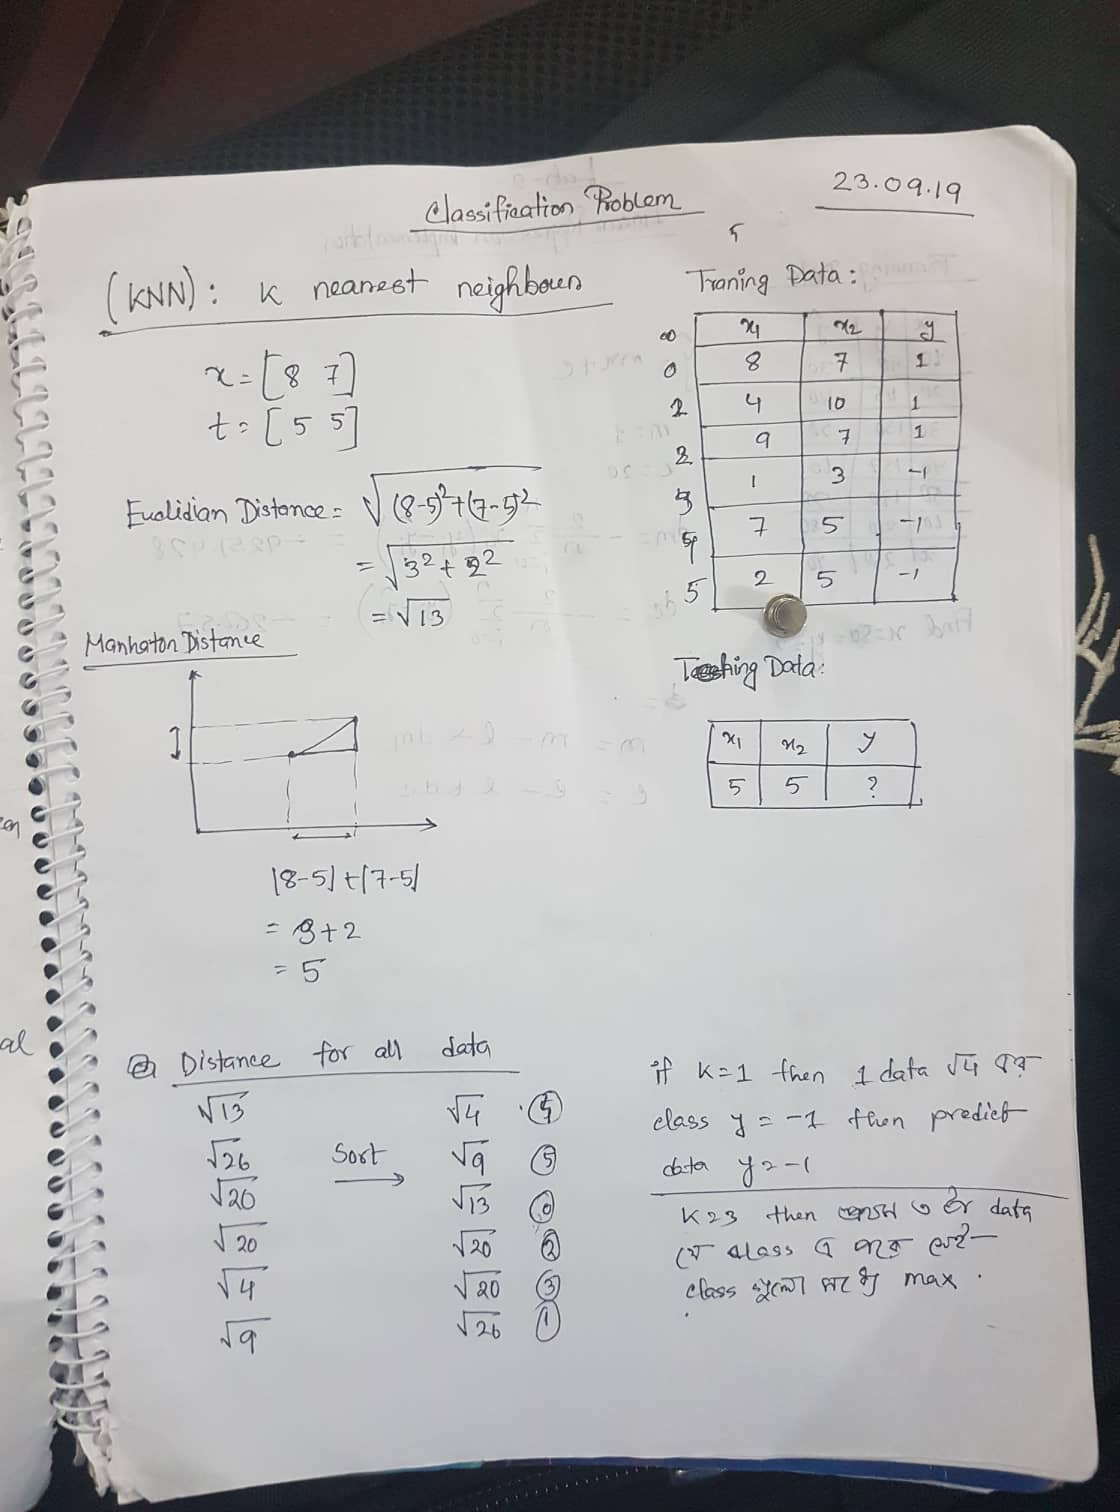 23.09.19
Classification Problem
(KNN): K nearest neighbour
x = [8 7]
t = [5 5]
Euclidian Distance = √(8-5)²+(7-5)²
= √3² + 2²
= √13
Manhaton Distance
|8-5|+|7-5|
= 3+2
= 5
Traning Data:
x₁ x₂ y
0 8 7 1
4 10 1
2 9 7 1
3 1 3 -1
7 5 -1
5 2 5 -1
Data:
x₁ x₂ y
5 5 ?
Distance for all data
√13
√26
√20
√20
√4
√9
Sort
√4 4
√9 5
√13 0
√20 2
√20 3
√26 1
if K=1 then 1 data √4
class y = -1 then predict
data y = -1
K=3 then ৩ টা data
যে class এ
class গুলো মধ্যে max .